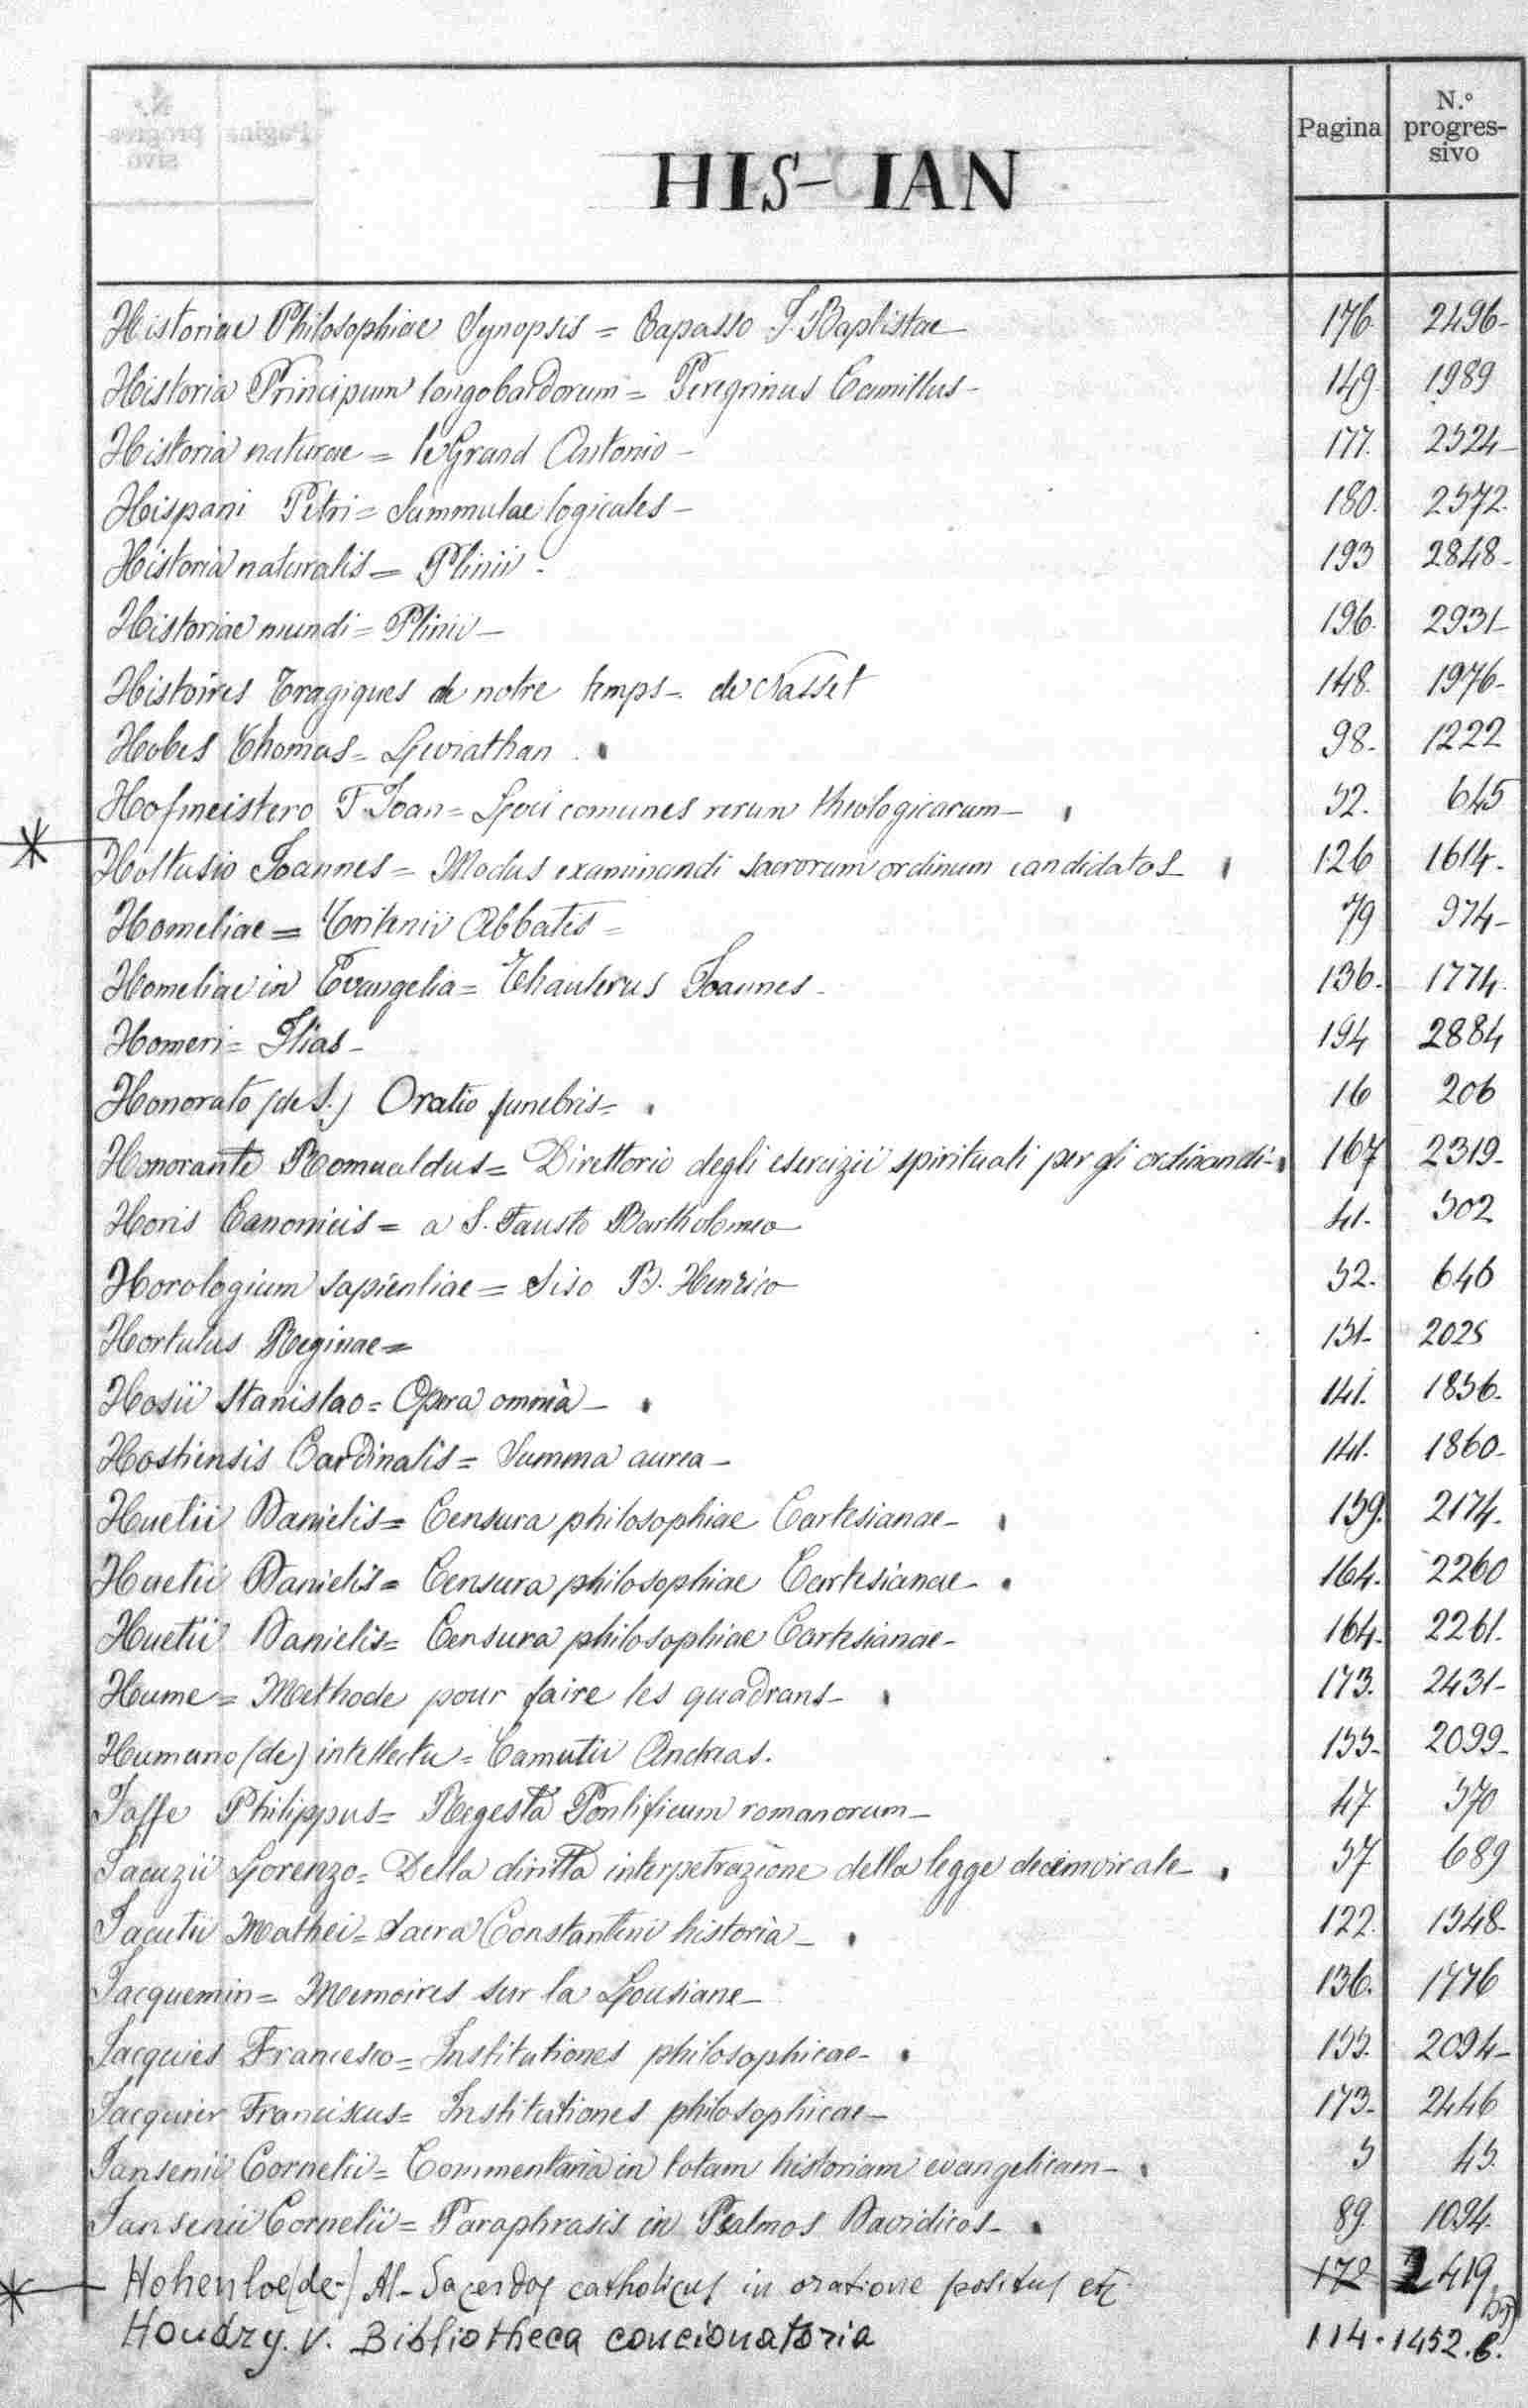 Pagina N.° progres-sivo
HIS-IAN
Historiae Philosophiae Synopsis = Capasso I. Baptistae 176 2496-
Historia Principum longobardorum = Peregrinus Camillus- 149. 1989
Historia naturae = le Grand Antonio - 177. 2524-
Hispani Petri = Summulae logicales - 180. 2572.
Historia naturalis = Plinii - 193 2848-
Historiae mundi = Plinii - 196. 2931-
Histoires Tragiques de notre temps - de 148. 1976-
Hobes Thomas = Leviathan 98- 1222
Hofmeistero F. Ioan = Loci comunes rerum theologicarum - 52. 645
Holtusio Ioannes = Modus examinandi sacrorum ordinum candidatos 126 1614-
Homeliae = Tritenii Abbatis = 79 974-
Homeliae in Evangelia = Thaulerus Ioannes - 136. 1774.
Homeri = Ilias - 194 2884
Honorato (de S.) Oratio funebris = 16 206
Honorante Romualdus = Direttorio degli esercizii spirituali per gli ordinandi - 167 2319-
Horis Canonicis = a S. Fausto Bartholomeo 41- 502
Horologium sapientiae = Siso B. Henrico 52- 646
Hortulus Reginae = 151- 2025
Hosii Stanislao = Opera omnia - 141. 1856.
Hostiensis Cardinalis = Summa aurea - 141. 1860-
Huetii Danielis = Censura philosophiae Cartesianae - 159. 2174.
Huetii Danielis = Censura philosophiae Cartesianae - 164. 2260
Huetii Danielis = Censura philosophiae Cartesianae - 164. 2261.
Hume = Methode pour faire les quadrans - 173. 2431-
Humano (de) intellectu = Camutii Andreas. 155- 2099-
Iaffe Philippus = Regesta Pontificum romanorum - 47 570
Iacuzii Lorenzo = Della diritta interpetrazione della legge decemvirale - 57 689
Iacutii Mathei = Sacra Constantini historia - 122. 1548-
Iacquemin = Memoires sur la Lousiane - 136. 1776
Iacquies Francesco = Institutiones philosophicae - 155. 2094-
Iacquier Franciscus = Institutiones philosophicae - 173- 2446
Iansenii Cornelii = Commentaria in totam historiam evangelicam - 5 45.
Iansenii Cornelii = Paraphrasis in Psalmos Davidicos - 89. 1094.
Hohenloe (de-) Al- Sacerdos catholicus in oratione positus etc 172 2419
Houdry. V. Bibliotheca concionatoria 114 - 1452. b.